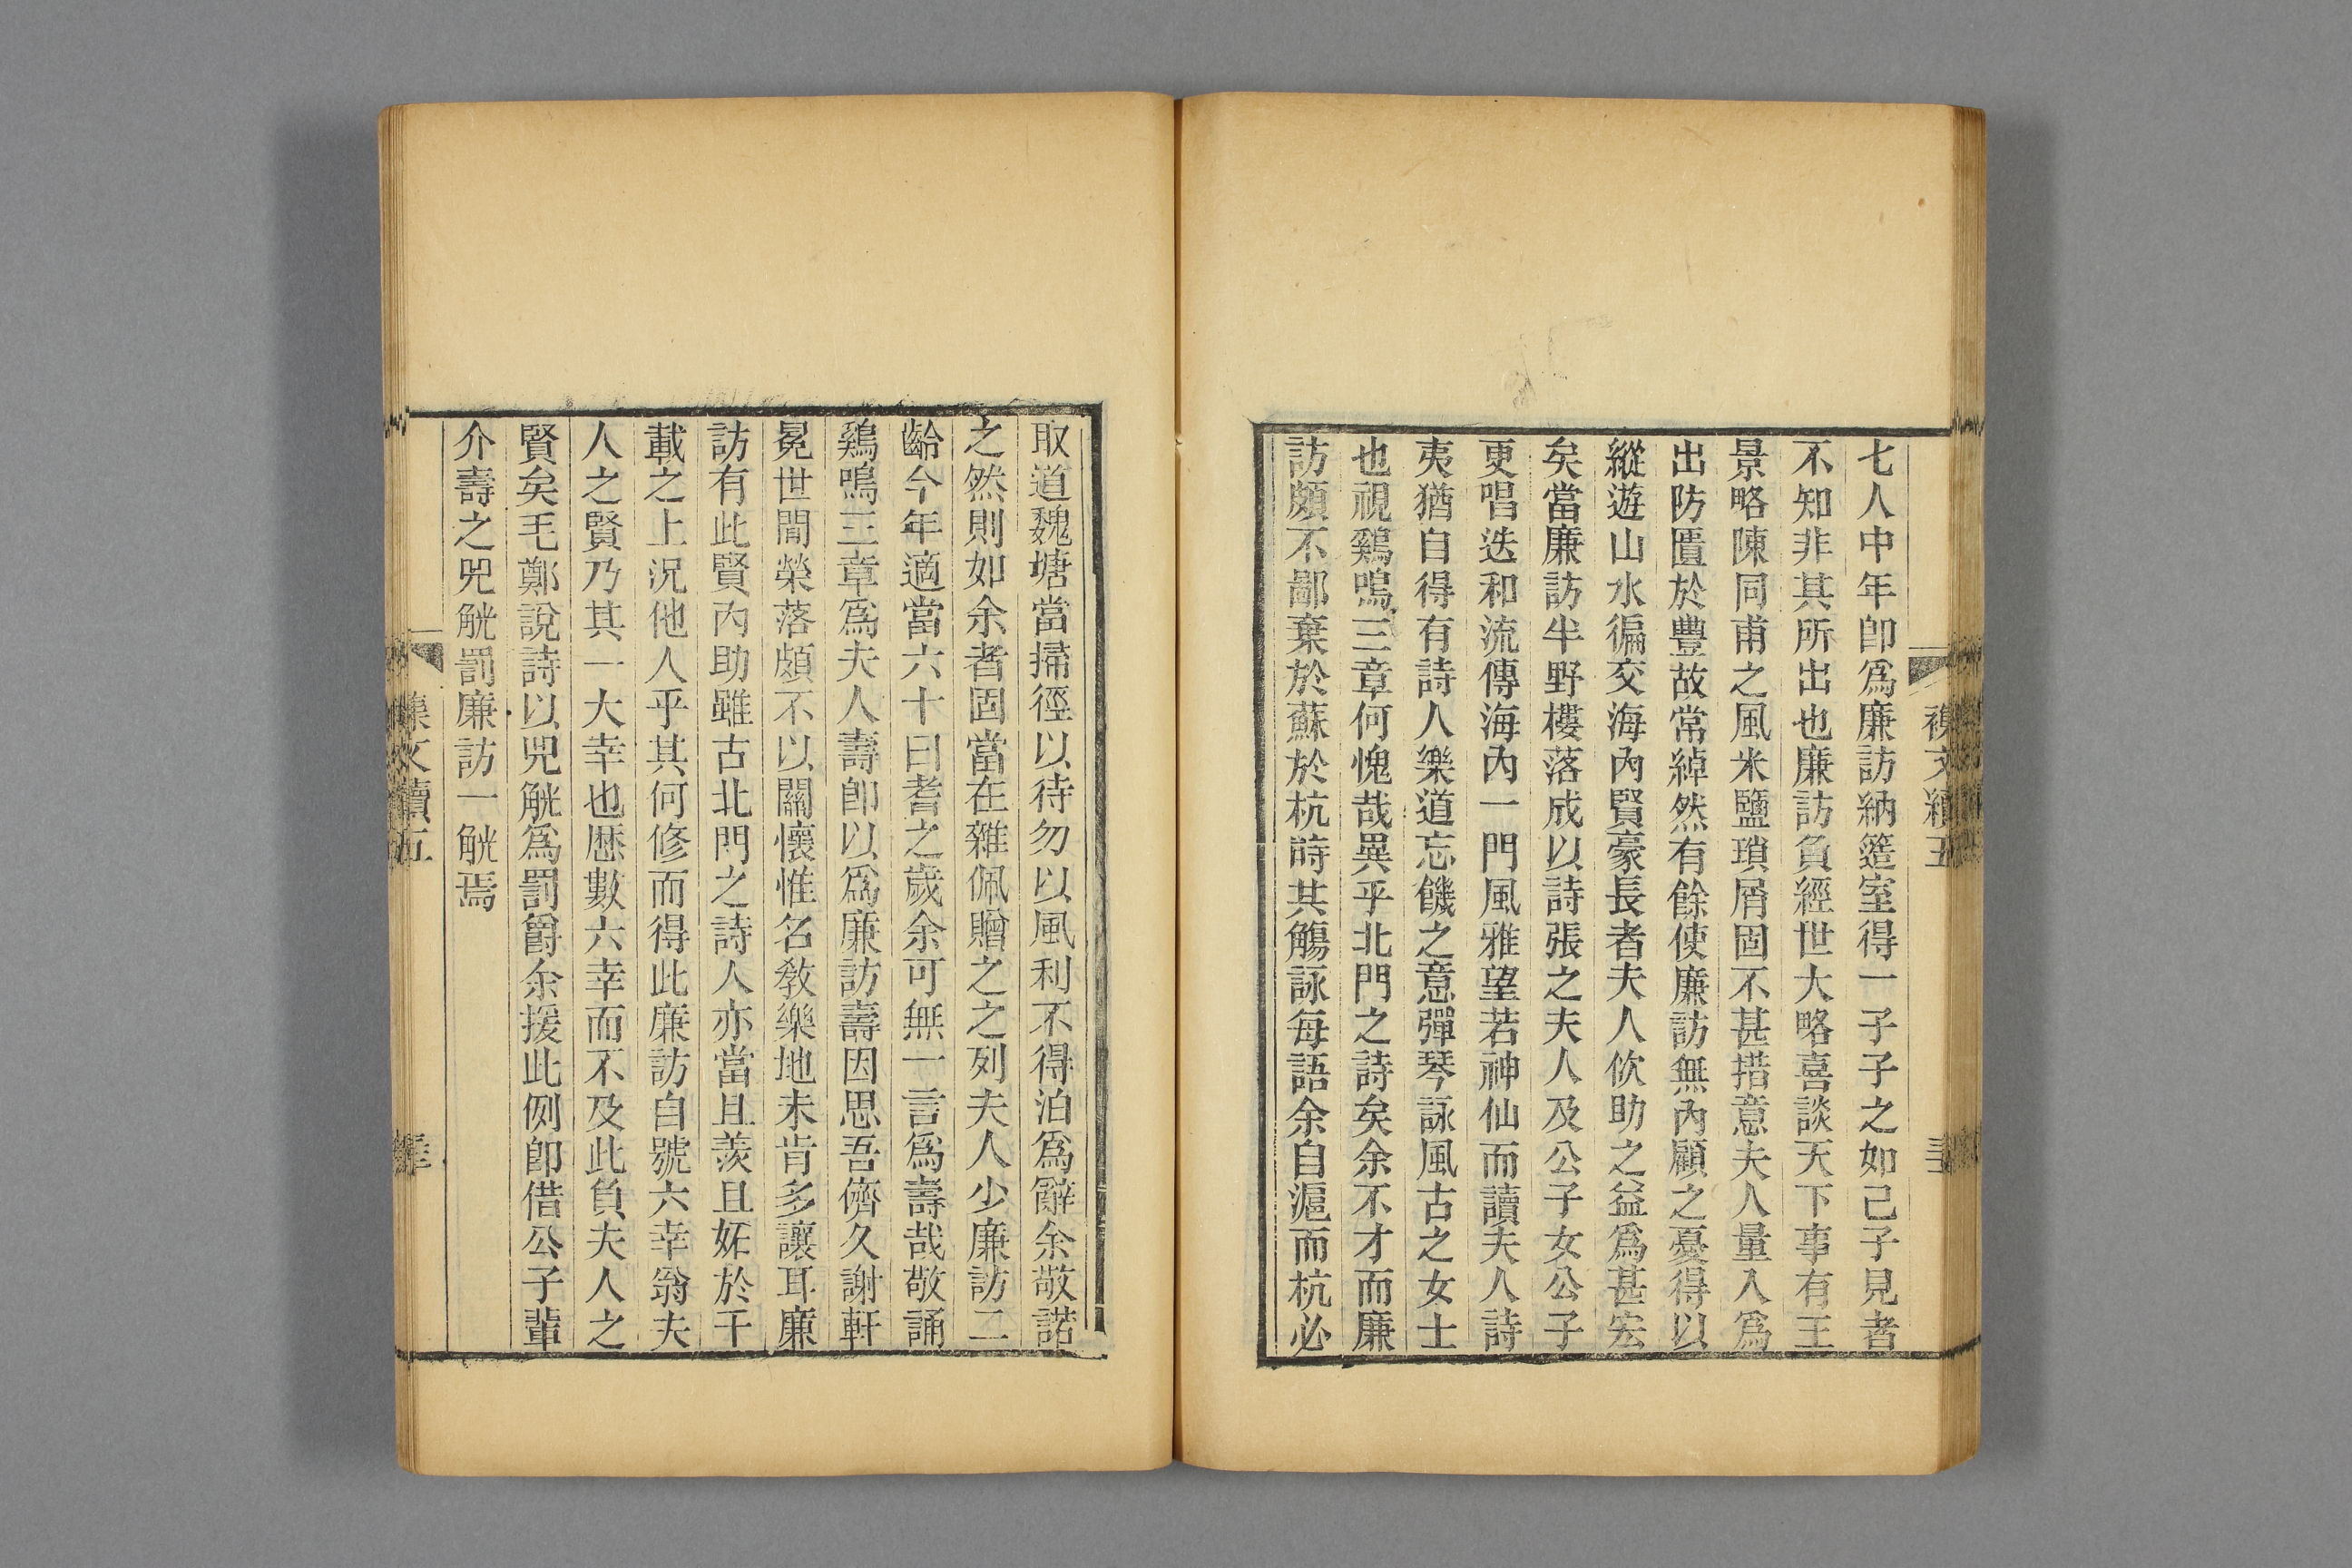 七人中年卽爲廉訪納簉室得一子子之如己子見者
不知非其所出也廉訪負經世大略喜談天下事有王
景略陳同甫之風米鹽瑣屑固不甚措意夫人量入爲
出防匱於豐故常綽然有餘使廉訪無內顧之憂得以
縱遊山水徧交海內賢豪長者夫人佽助之益爲甚宏
矣當廉訪半野樓落成以詩張之夫人及公子女公子
更唱迭和流傳海內一門風雅望若神仙而讀夫人詩
夷猶自得有詩人樂道忘饑之意彈琴詠風古之女士
也視鷄鳴三章何愧哉異乎北門之詩矣余不才而廉
訪頗不鄙棄於蘇於杭時其觴詠每語余自滬而杭必
取道魏塘當掃徑以待勿以風利不得泊爲辭余敬諾
之然則如余者固當在雜佩贈之之列夫人少廉訪二
齡今年適當六十曰耆之歲余可無一言爲壽哉敬誦
鷄鳴三章爲夫人壽卽以爲廉訪壽因思吾儕久謝軒
冕世閒榮落頗不以關懷惟名敎樂地未肯多讓耳廉
訪有此賢內助雖古北門之詩人亦當且羨且妬於千
載之上況他人乎其何修而得此廉訪自號六幸翁夫
人之賢乃其一大幸也歷數六幸而不及此負夫人之
賢矣毛鄭說詩以兕觥爲罰爵余援此例卽借公子輩
介壽之兕觥罰廉訪一觥焉